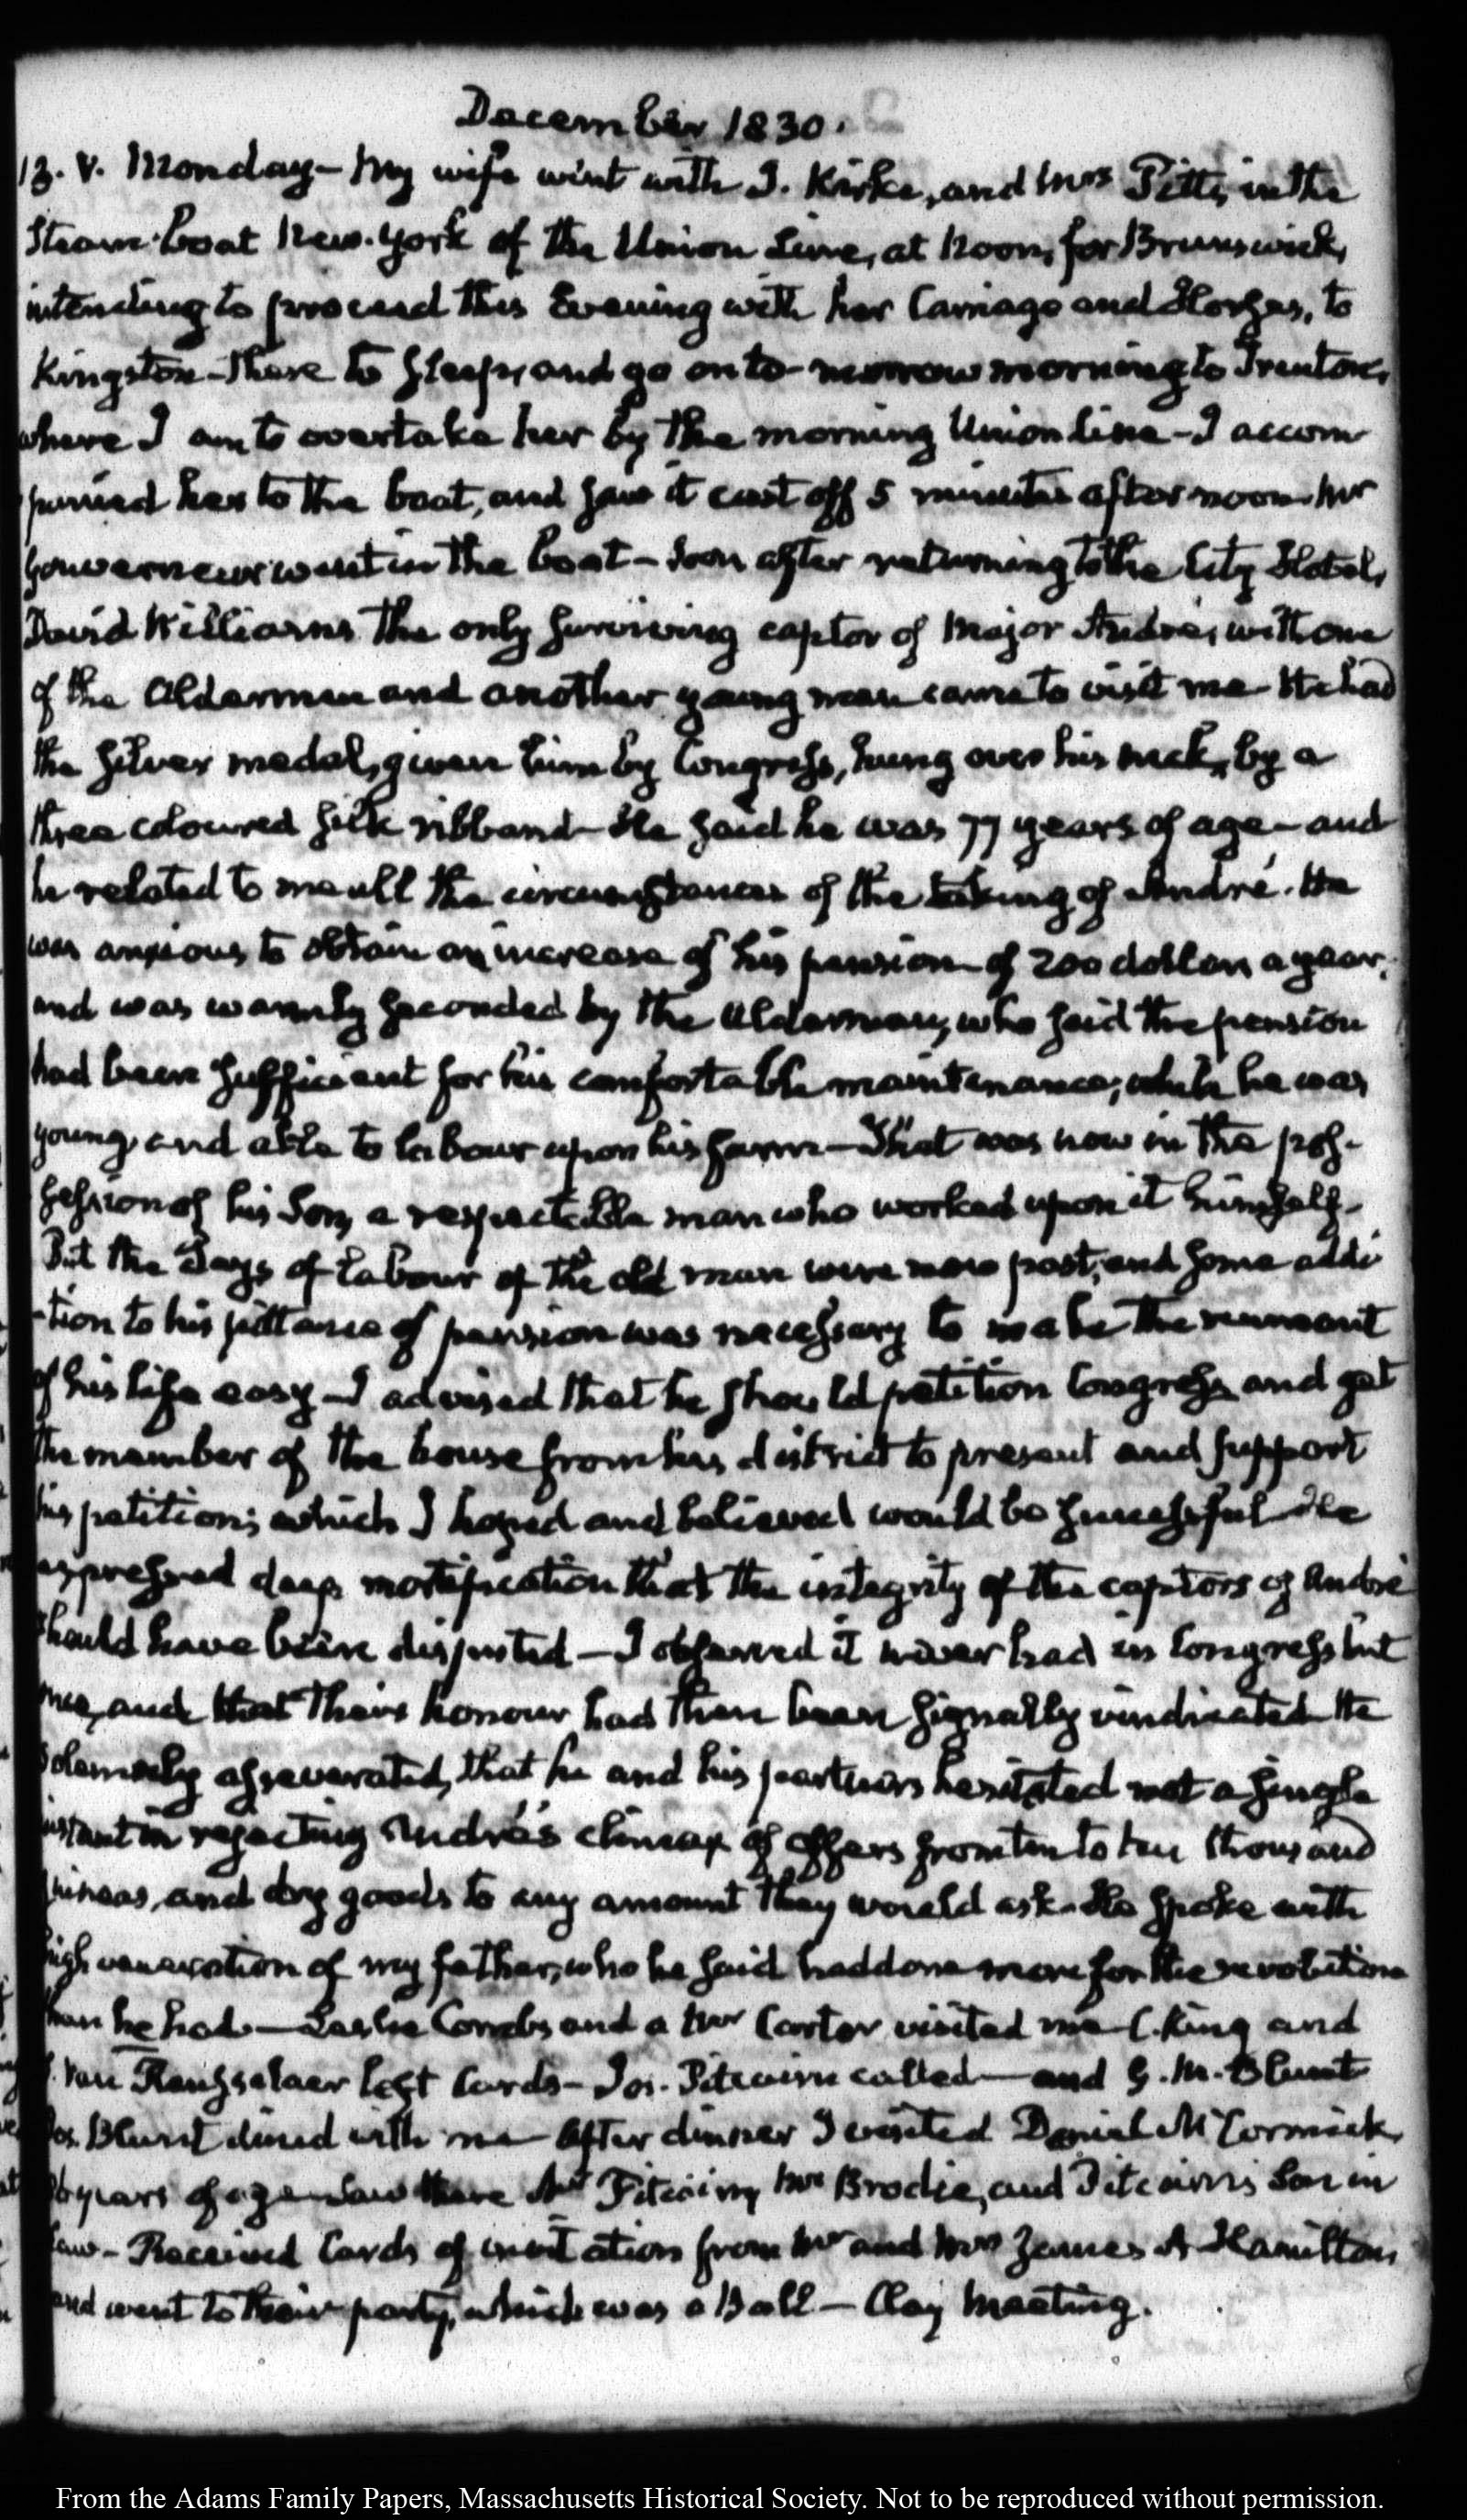 December 1830.
13. V. Monday – My wife went with J. Kirke, and Mrs Pitts, in the
Steam-boat New-York of the Union Line, at Noon, for Brunswick,
intending to proceed this Evening with her Carriage and Horses, to
Kingston – There to sleep, and go on to-morrow morning to Trenton,
where I am to overtake her by the morning Union line – I accom-
panied her to the boat, and saw it cast off 5 minutes after noon Mr
Gouverneur went in the boat – Soon after returning to the City Hotel,
David Williams the only surviving captor of Major André, with one
of the Aldermen and another young man came to visit me – He had
the silver medal, given him by Congress, hung over his neck, by a
three coloured silk ribband – He said he was 77 years of age – and
he related to me all the circumstances of the taking of André. He
was anxious to obtain an increase of his pension of 200 dollars a year,
and was warmly seconded by the Alderman, who said the pension
had been sufficient for his comfortable maintenance, while he was
young, and able to labour upon his farm – That was now in the pos-
session of his Son, a respectable man who worked upon it himself –
But the days of labour of the old man were now past, and some addi
-tion to his pittance of pension was necessary to make the remnant
of his life easy – I advised that he should petition Congress, and get
the member of the house from his district to present and support
his petition; which I hoped and believed would be successful – He
expressed deep mortification that the integrity of the captors of André
should have been disputed – I observed it never had in Congress but
once, and that their honour had then been signally vindicated – He
solemnly asseverated, that he and his partners hesitated not a single
instant in rejecting André's climax of offers from ten to ten thousand
guineas, and dry goods to any amount they would ask – He spoke with
high veneration of my father, who he said had done more for the revolution
than he had – Leslie Combs, and a Mr Carter visited me – C. King and
Van Rensselaer left Cards – Jos. Pitcairn called – and G. M. Blunt
Jos. Blunt dined with me – After dinner I visited Daniel McCormick,
years of age – Saw there Mr Pitcairn, Mr Brodie, and Pitcairn's Son in
law – Received Cards of invitation from Mr and Mrs James A Hamilton
and went to their party, which was a Ball – Clay Meeting.
From the Adams Family Papers, Massachusetts Historical Society. Not to be reproduced without permission.